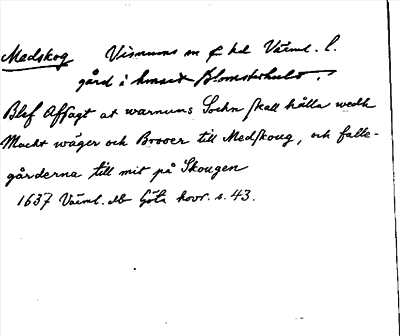 Medskog Visnums sn f hd Värml. l.
gård i Blomsterhult.
Blef Affsagt at warnums Sochn skall hålla wedh
Macht wäger och Brooer till Medskoug, och falle-
gårderna till mit på Skougen
1637 Värml. db Göta hovr. s. 43.